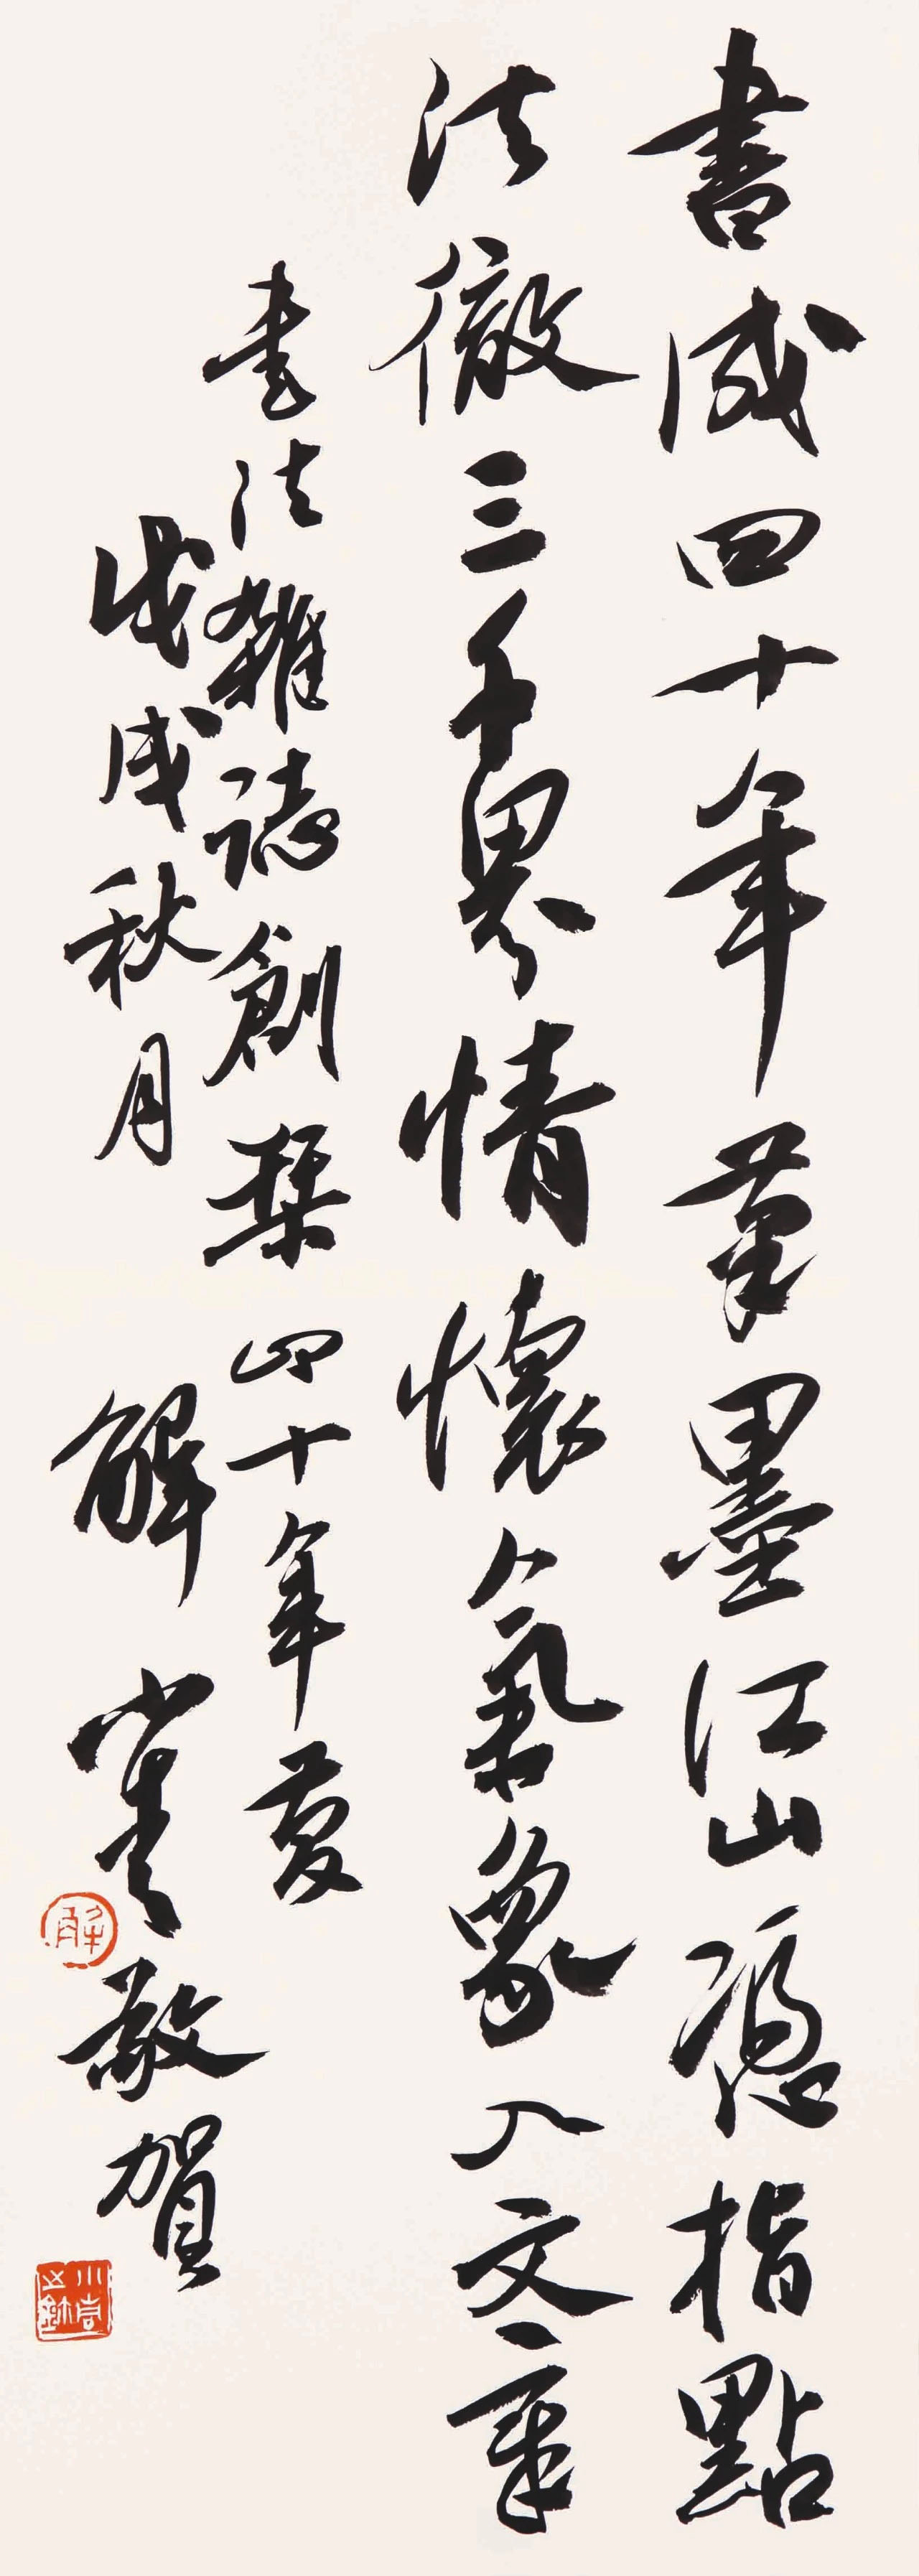 書成四十年筆墨江山憑指點
法徹三千界情懷氣象入文章
書法雜誌創栞四十年慶
戊戌秋月 解小青敬賀
解